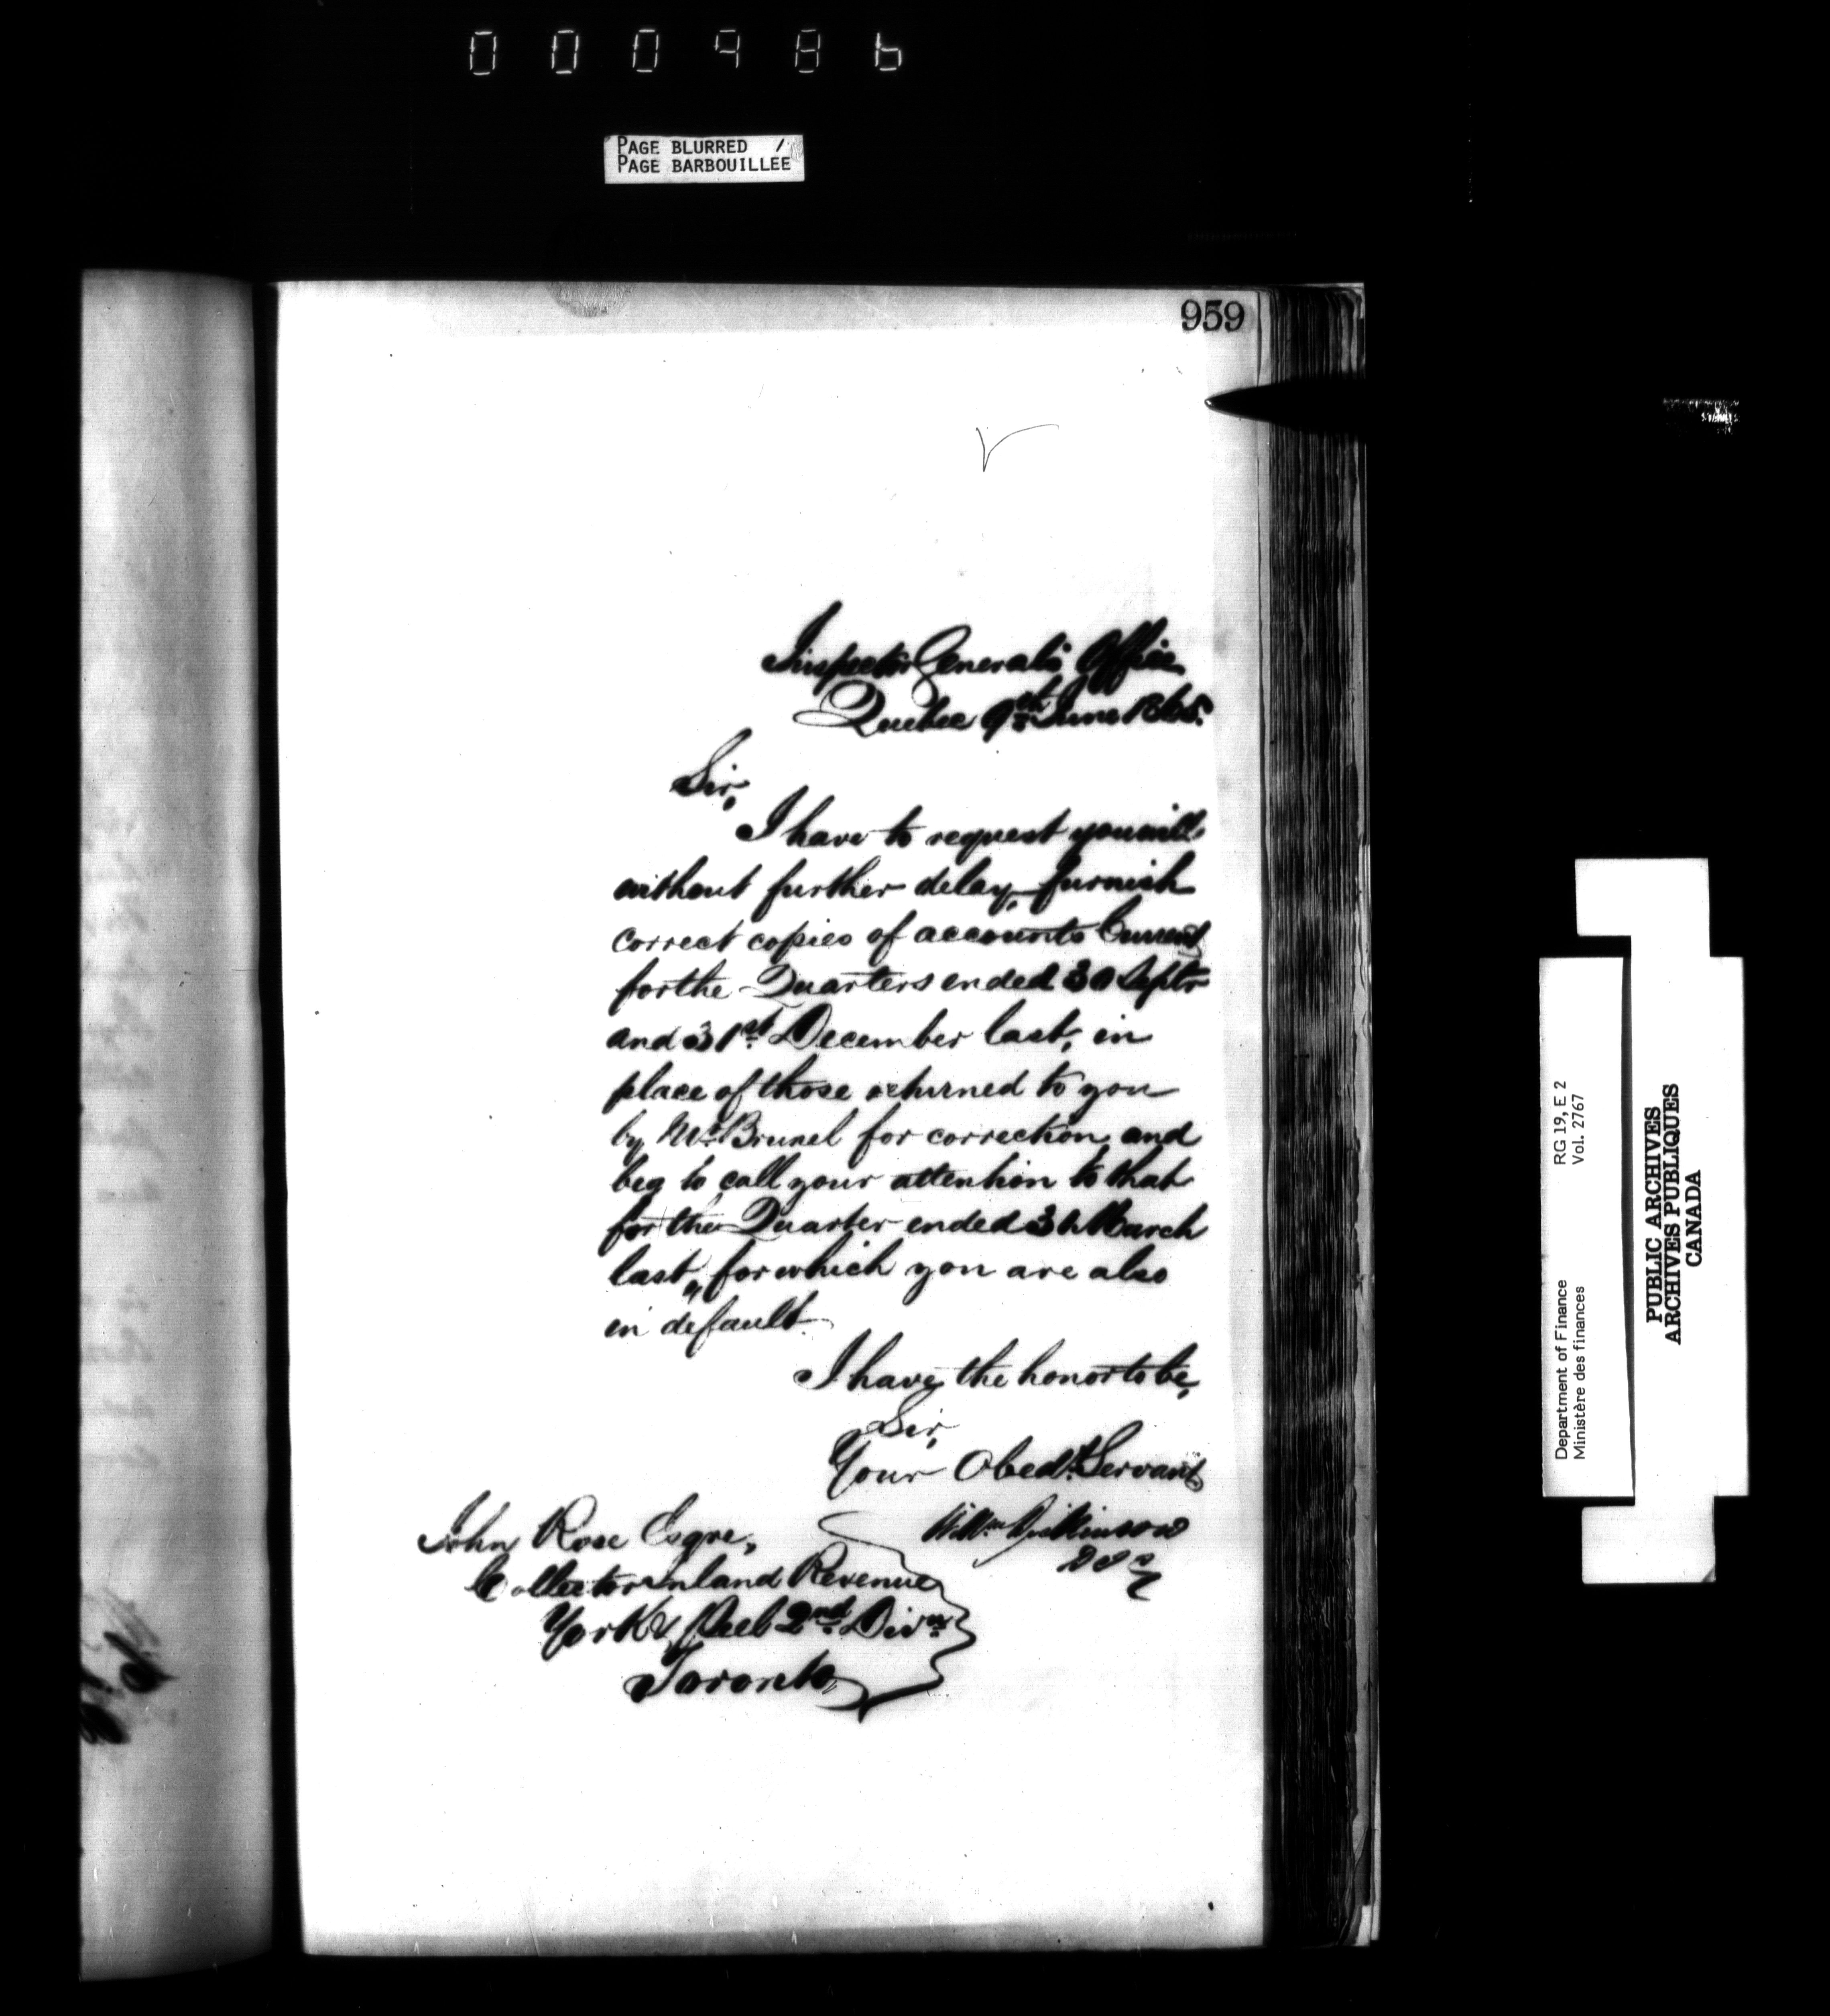 000986
PAGE BLURRED
PAGE BARBOUILLÉE
959
Inspector General's Office
Quebec 9th June 1865.
Sir,
I have to request you will
without further delay, furnish
correct copies of accounts Current
for the Quarters ended 30 Septr
and 31st December last, in
place of those returned to you
by Mr Brunel for correction, and
beg to call your attention to that
for the Quarter ended 31 March
last, for which you are also
in default.
I have the honor to be,
Sir,
Your Obedt Servant
Willm Dickinson
John Rose Esqre,
Collector Inland Revenue
York & Peel 2nd Divn
Toronto
Department of Finance RG 19, E 2
Ministère des finances Vol. 2767
PUBLIC ARCHIVES
ARCHIVES PUBLIQUES
CANADA